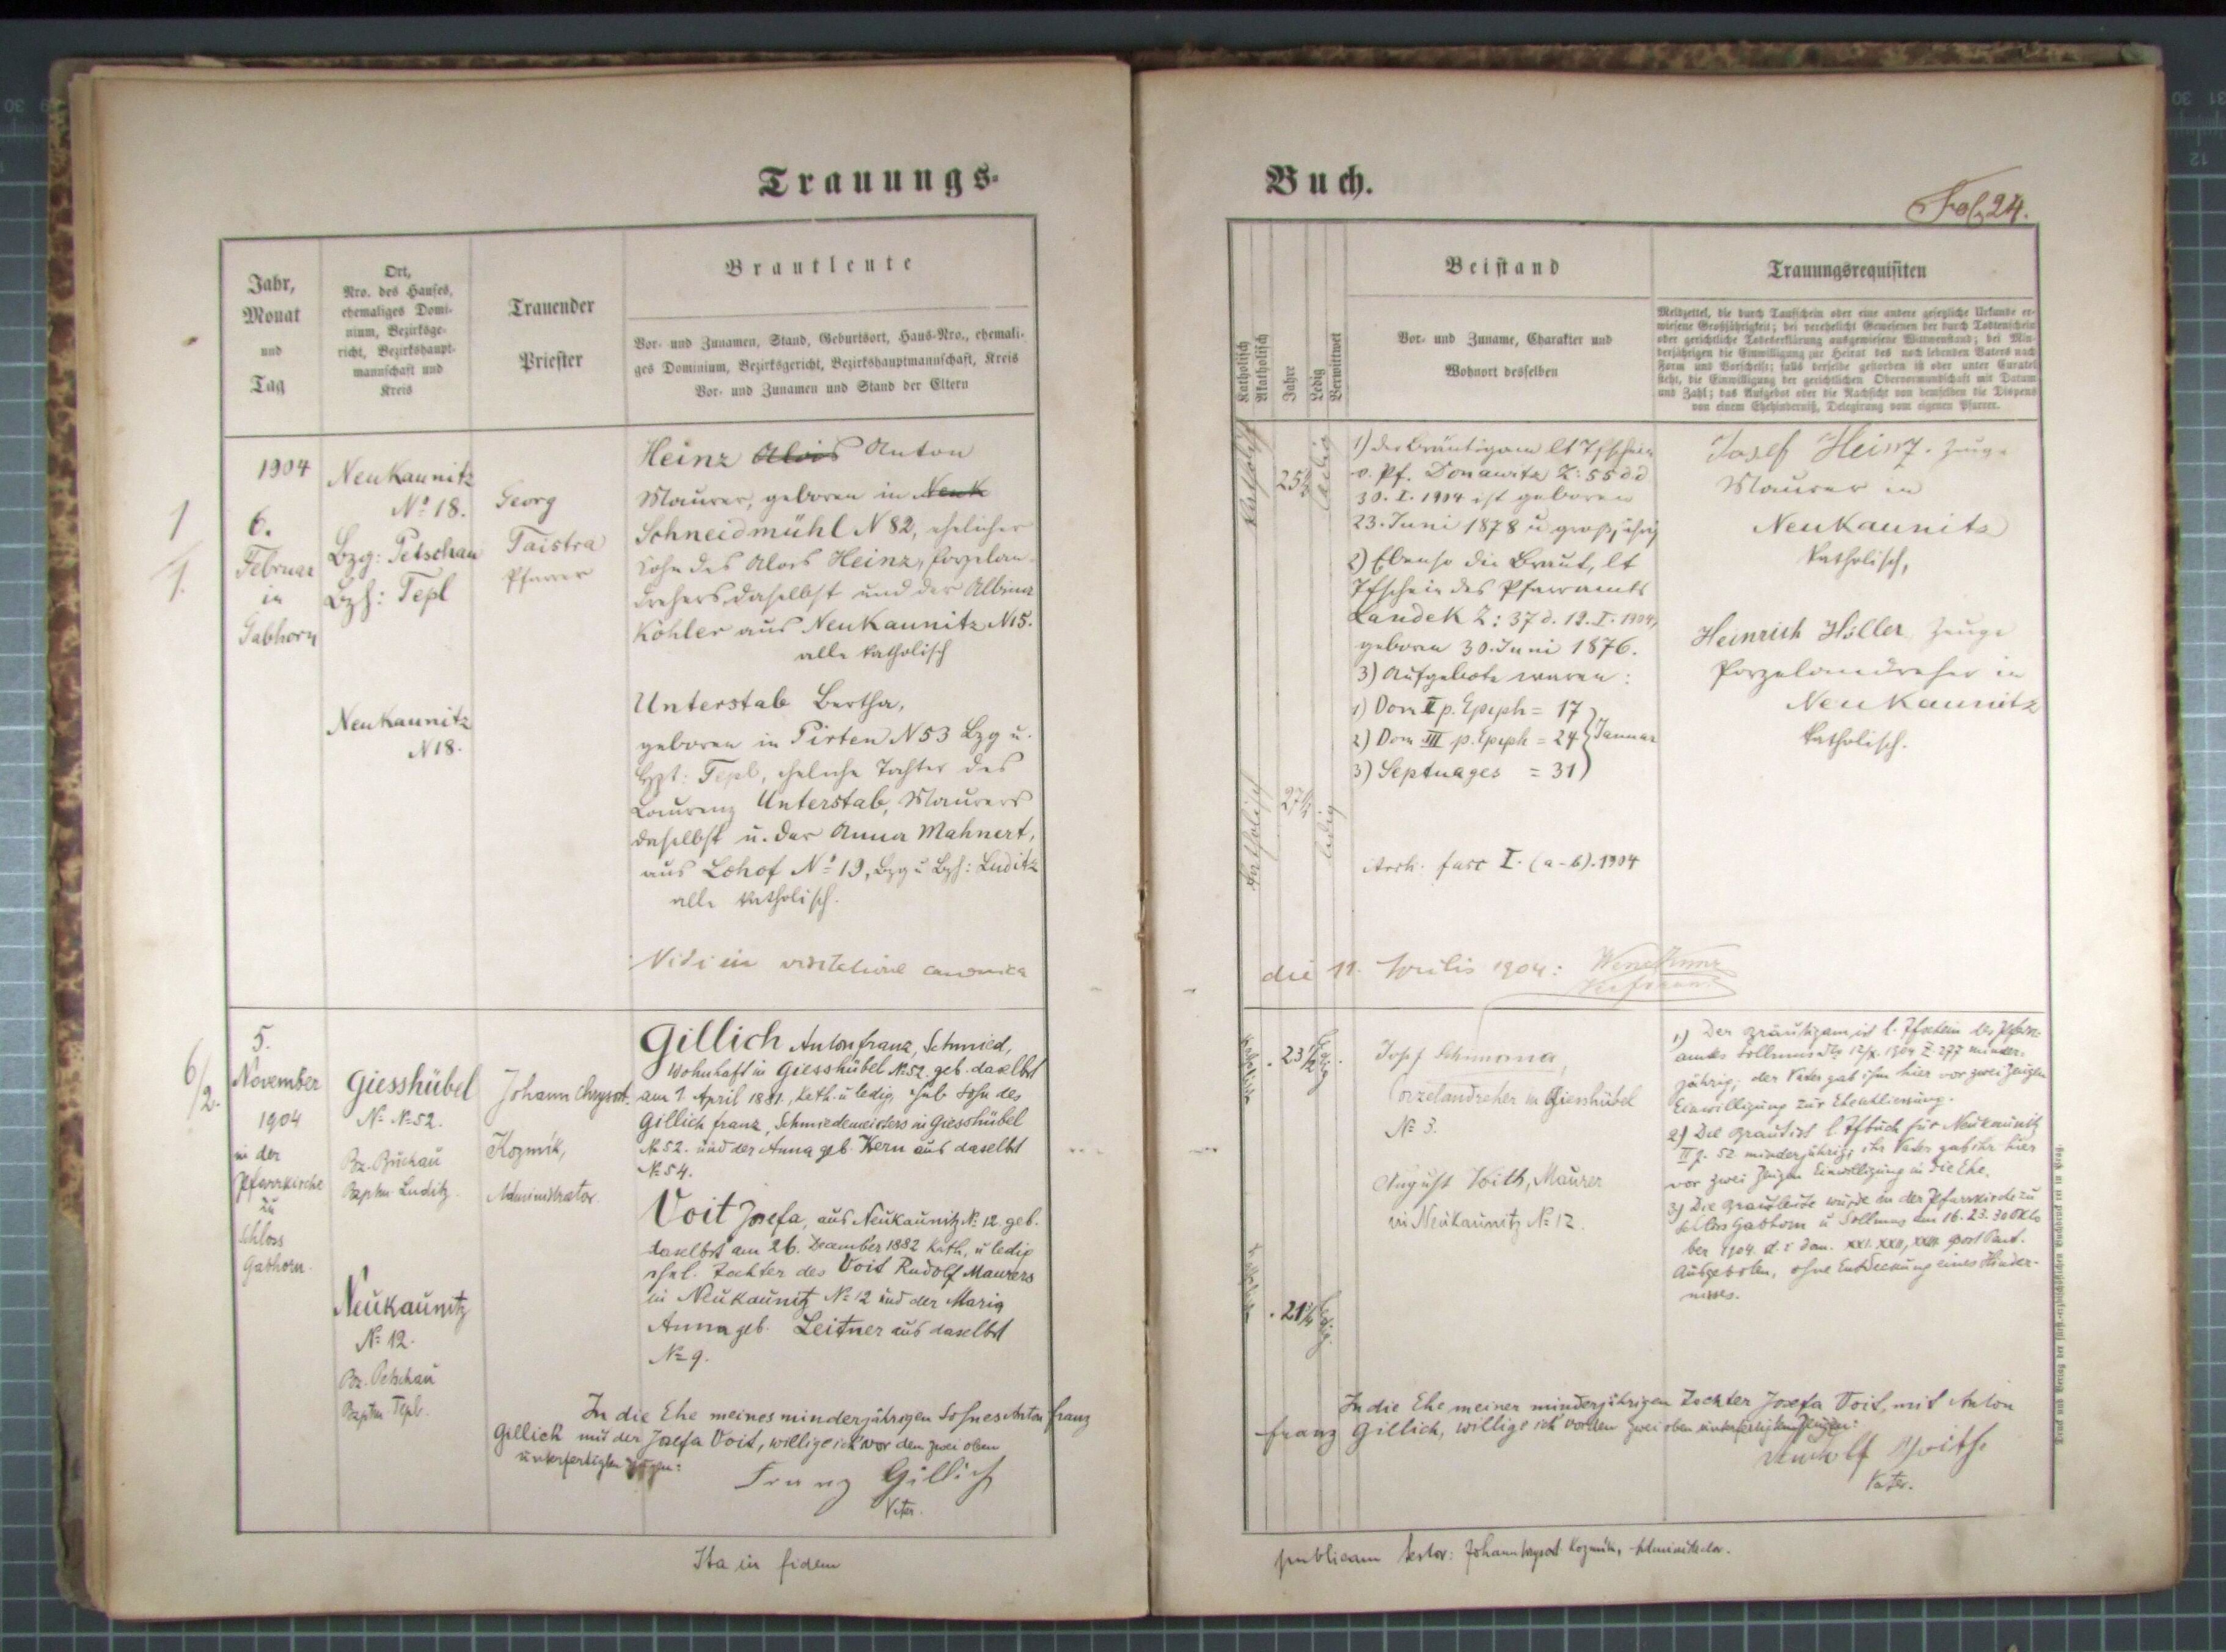 Trauungs-
Jahr,
Monat
und
Tag
Ort,
Nro. des Hauses,
ehemaliges Domi-
nium, Bezirksge-
richt, Bezirkshaupt-
mannschaft und
Kreis
Trauender
Priester
Brautleute
Vor- und Zunamen, Stand, Geburtsort, Haus-Nro., ehemali-
ges Dominium, Bezirksgericht, Bezirkshauptmannschaft, Kreis
Vor- und Zunamen und Stand der Eltern
1
1.
1904
6.
Februar
in
Gabhorn
Neukaunitz
No 18.
Bzg: Petschau
Bzh: Tepl
Neukaunitz
N 18.
Georg
Taistra
Pfarrer
Heinz Alois Anton
Maurer, geboren in Neuk
Schneidmühl N 82, ehelicher
Sohn des Alois Heinz, Porzelan-
drehers daselbst und der Albina
Köhler aus Neukaunitz N 15.
alle katholisch
Unterstab Bertha,
geboren in Pirten N 53 Bzg u.
Bzt: Tepl, eheliche Tochter des
Laurenz Unterstab, Maurers
daselbst u. der Anna Mahnert,
aus Lohof No 19, Bzg u Bzh: Luditz
alle katholisch.
Vidi in visitatione canonica
6/2.
5.
November
1904
in der
Pfarrkirche
zu
Schloss
Gabhorn.
Giesshübel
N. No 52.
Bz. Buchau
Bzptm. Luditz.
Neukaunitz
No 12.
Bz. Petschau
Bzptm Tepl.
Johann Chrysost.
Kozmik,
Administrator.
Gillich Anton Franz, Schmied,
wohnhaft in Giesshübel No 52. geb. daselbst
am 7. April 1881, kath. u ledig, ehel. Sohn des
Gillich Franz, Schmiedemeisters in Giesshübel
No 52. und der Anna geb. Kern aus daselbst
No 54.
Voit Josefa, aus Neukaunitz No 12 geb.
daselbst am 26. Dezember 1882 kath. u ledig
ehel. Tochter des Voit Rudolf Maurers
in Neukaunitz No 12 und der Maria
Anna geb. Leitner aus daselbst
No 9.
In die Ehe meines minderjährigen Sohnes Anton Franz
Gillich mit der Josefa Voit, willige ich vor den zwei oben
unterfertigten Zeugen:
Franz Gillich
Vater.
Ita in fidem
Buch.
Fol. 24.
Katholisch
Akatholisch
Jahre
Ledig
Verwittwet
Beistand
Vor- und Zuname, Charakter und
Wohnort desselben
Trauungsrequisiten
Meldzettel, die durch Taufschein oder eine andere gesetzliche Urkunde er-
wiesene Großjährigkeit; bei verehelicht Gewesenen der durch Todtenschein
oder gerichtliche Todeserklärung ausgewiesene Wittwenstand; bei Min-
derjährigen die Einwilligung zur Heirat des noch lebenden Vaters nach
Form und Vorschrift; falls derselbe gestorben ist oder unter Curatel
steht, die Einwilligung der gerichtlichen Obervormundschaft mit Datum
und Zahl; das Aufgebot oder die Nachsicht von demselben die Dispens
von einem Ehehinderniß, Delegirung vom eigenen Pfarrer.
katholisch
25½
ledig
1) Der Bräutigam lt Tfschein
v. Pf. Donawitz Z: 55 dd
30. I. 1904 ist geboren
23. Juni 1878 u großjährig
2) Ebenso die Braut, lt
Tfschein des Pfarramts
Landek Z: 37 d. 19. I. 1904,
geboren 30. Juni 1876.
3) Aufgebote waren:
1) Dom II p. Epiph = 17
2) Dom III p. Epiph = 24 } Januar
3) Septuages = 31
katholisch
27½
ledig
Arch. fasc I. (a-b). 1904
Josef Heinz. Zeuge
Maurer in
Neukaunitz
katholisch,
Heinrich Höller Zeuge
Porzelandreher in
Neukaunitz
katholisch.
die 11. Aprilis 1904:
katholisch
23½
ledig
katholisch
21½
ledig
Josef
Porzelandreher in Giesshübel
No 3.
August Voith, Maurer
in Neukaunitz No 12.
1) Der Bräutigam ist l. Tfschein des Pfarr-
amtes Sollmus 1904 Z. 277 minder-
jährig; der Vater gab ihm hier vor zwei Zeugen
Einwilligung zur Eheschliessung.
2) Die Braut ist l. Tfbuch für Neukaunitz
II p. 52 minderjährig; ihr Vater gab ihr hier
vor zwei Zeugen Einwilligung in die Ehe.
3) Die Brautleute wurde in der Pfarrkirche zu
Schloss Gabhorn u Sollmus am 16. 23. 30 Okto
ber 1904 d. i dom. XXI. XXII, XXIII. post Pent.
Aufgeboten, ohne Entdeckung eines Hinder-
nisses.
In die Ehe meiner minderjährigen Tochter Josefa Voit, mit Anton
Franz Gillich, willige ich vor den zwei oben unterfertigten Zeugen:
Rudolf Voith
Vater.
publicam testor: Johann Chrysost Kozmik, Administrator.